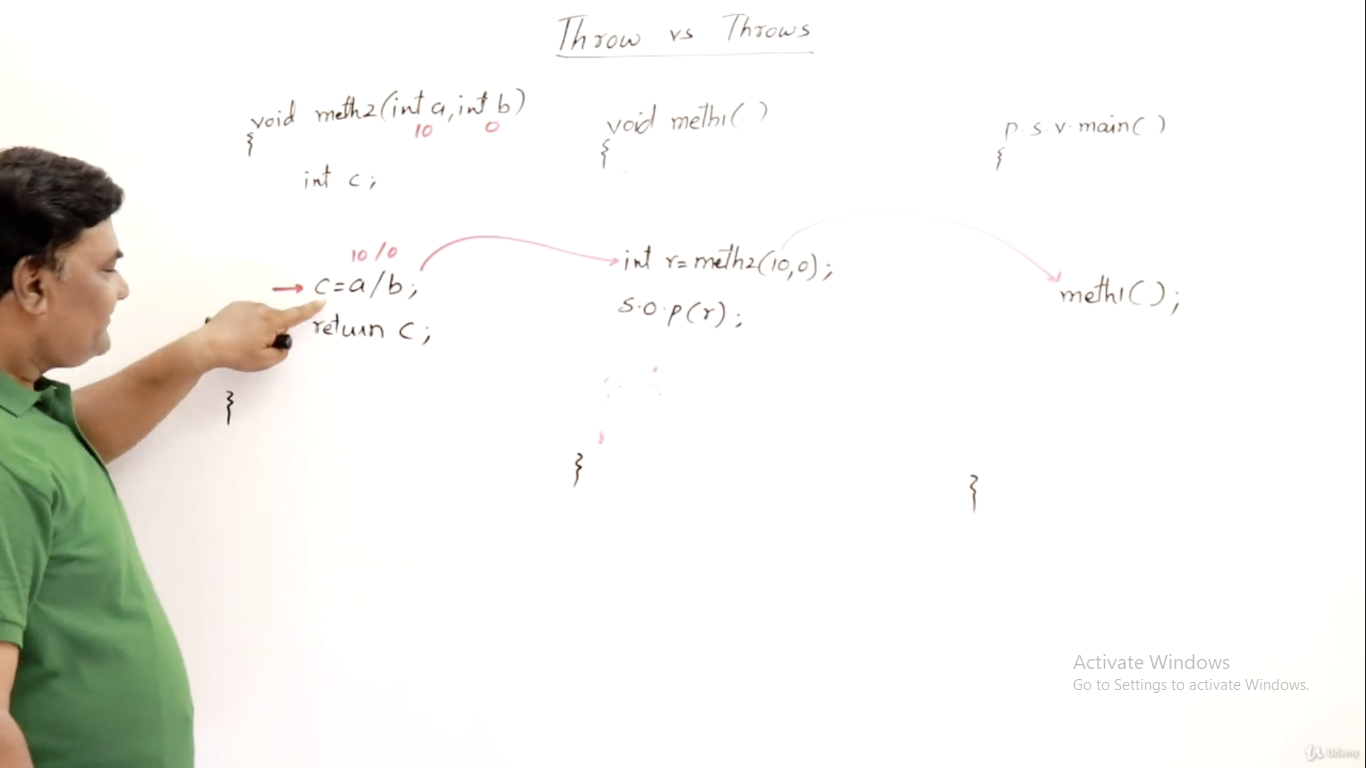 Throw vs Throws
void meth2(int a, int b)
10 0
{
int c;
10/0
c=a/b;
return c;
}
void meth1( )
{
int r=meth2(10,0);
S.O.P(r);
}
p.s.v.main( )
{
meth1( );
}
Activate Windows
Go to Settings to activate Windows.
Udemy